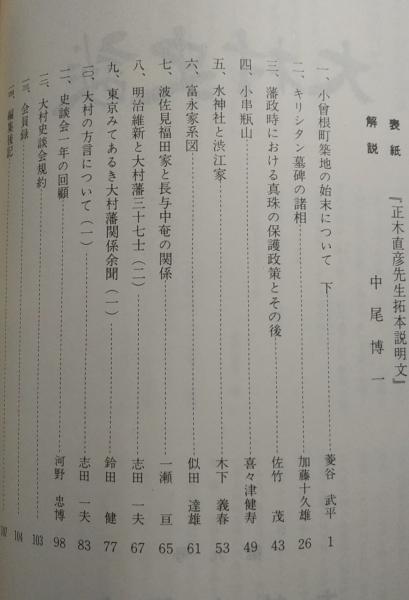 表紙 『正木直彦先生拓本説明文』
解説 中尾博一
一、小曾根町築地の始末について 下 菱谷武平 1
二、キリシタン墓碑の諸相 加藤十久雄 26
三、藩政時における真珠の保護政策とその後 佐竹茂 43
四、小串瓶山 喜々津健寿 49
五、水神社と渋江家 木下義春 53
六、富永家系図 似田達雄 61
七、波佐見福田家と長与中奄の関係 一瀬亘 65
八、明治維新と大村藩三十七士(二) 志田一夫 67
九、東京みてあるき大村藩関係余聞(一) 鈴田健 77
一〇、大村の方言について(一) 志田一夫 83
一一、史談会一年の回顧 河野忠博 98
一二、大村史談会規約 103
一三、会員録 104
一四、編集後記 107